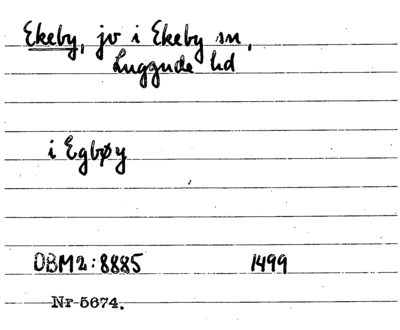 Ekeby, jv i Ekeby sn,
Luggude hd
i Egbøy
OBM2:8885 1499
Nr 5674.